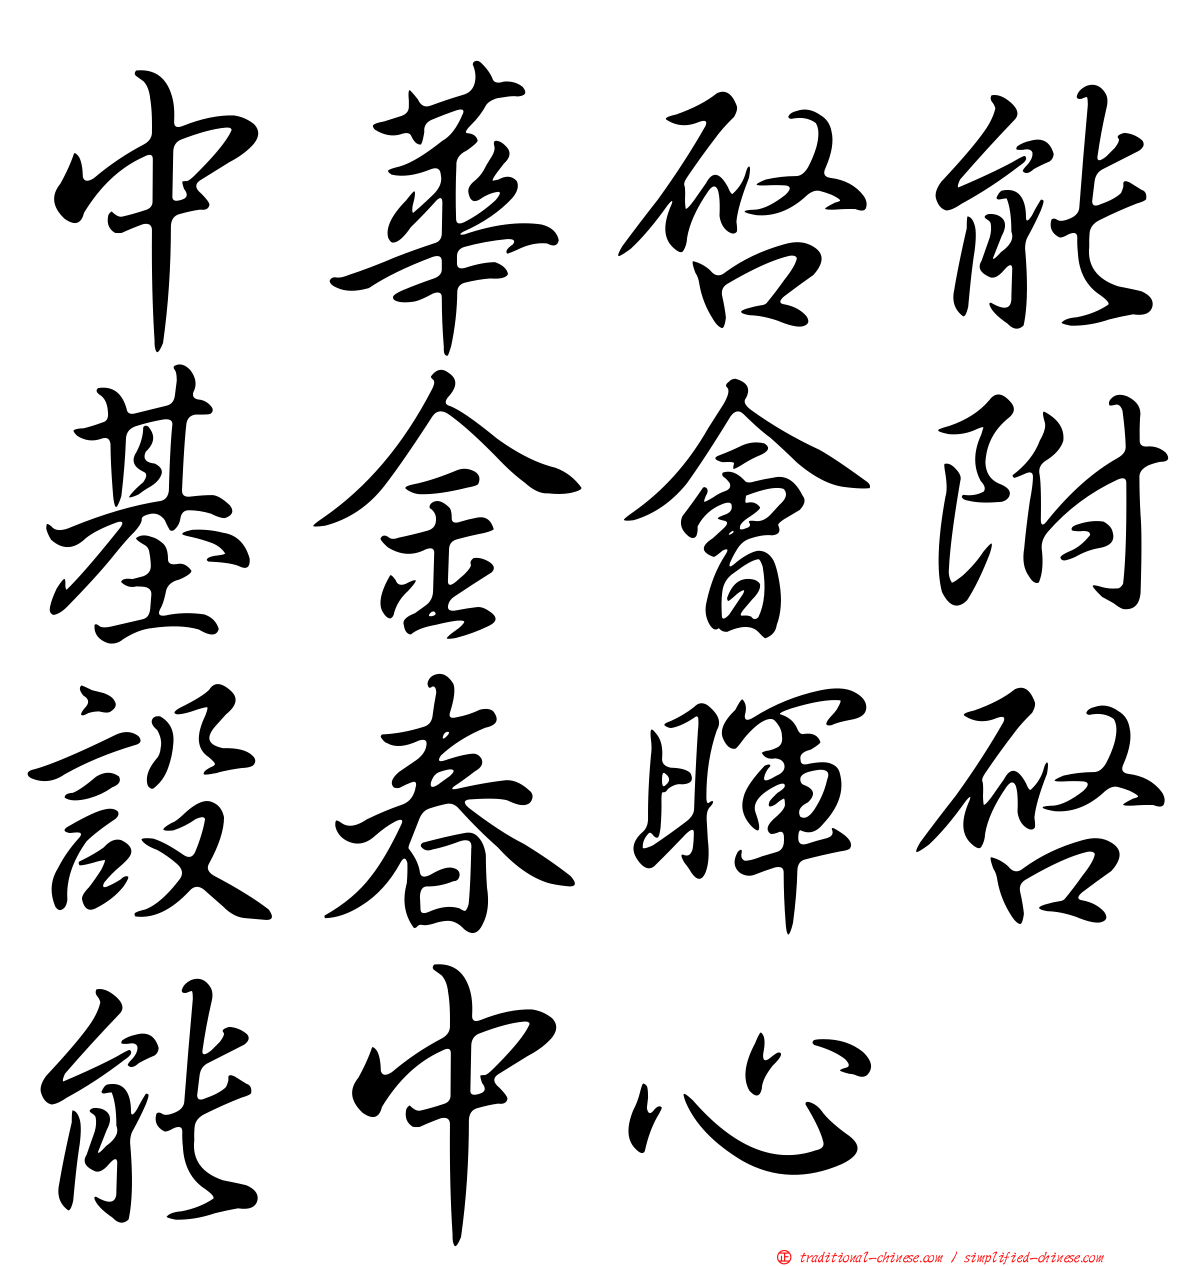 中華啓能
基金會附
設春暉啓
能中心
正 traditional-chinese.com / simplified-chinese.com